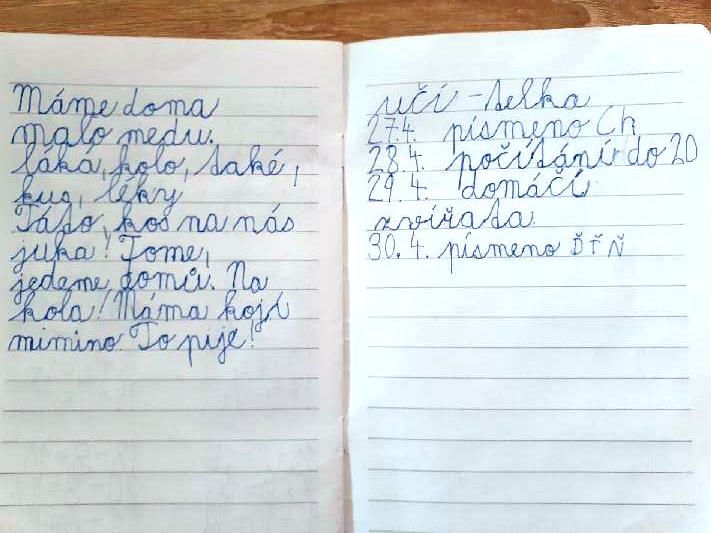 Máme doma
malo medu.
láká, kolo, také,
kus, léky
Táto, kos na nás
juka! Tome,
jedeme domů. Na
kola! Máma kojí
mimino To pije!
učí - telka
27.4. písmeno Ch
28.4. počítání do 20
29.4. domáčí
zvířata
30.4. písmeno Ď Ť Ň